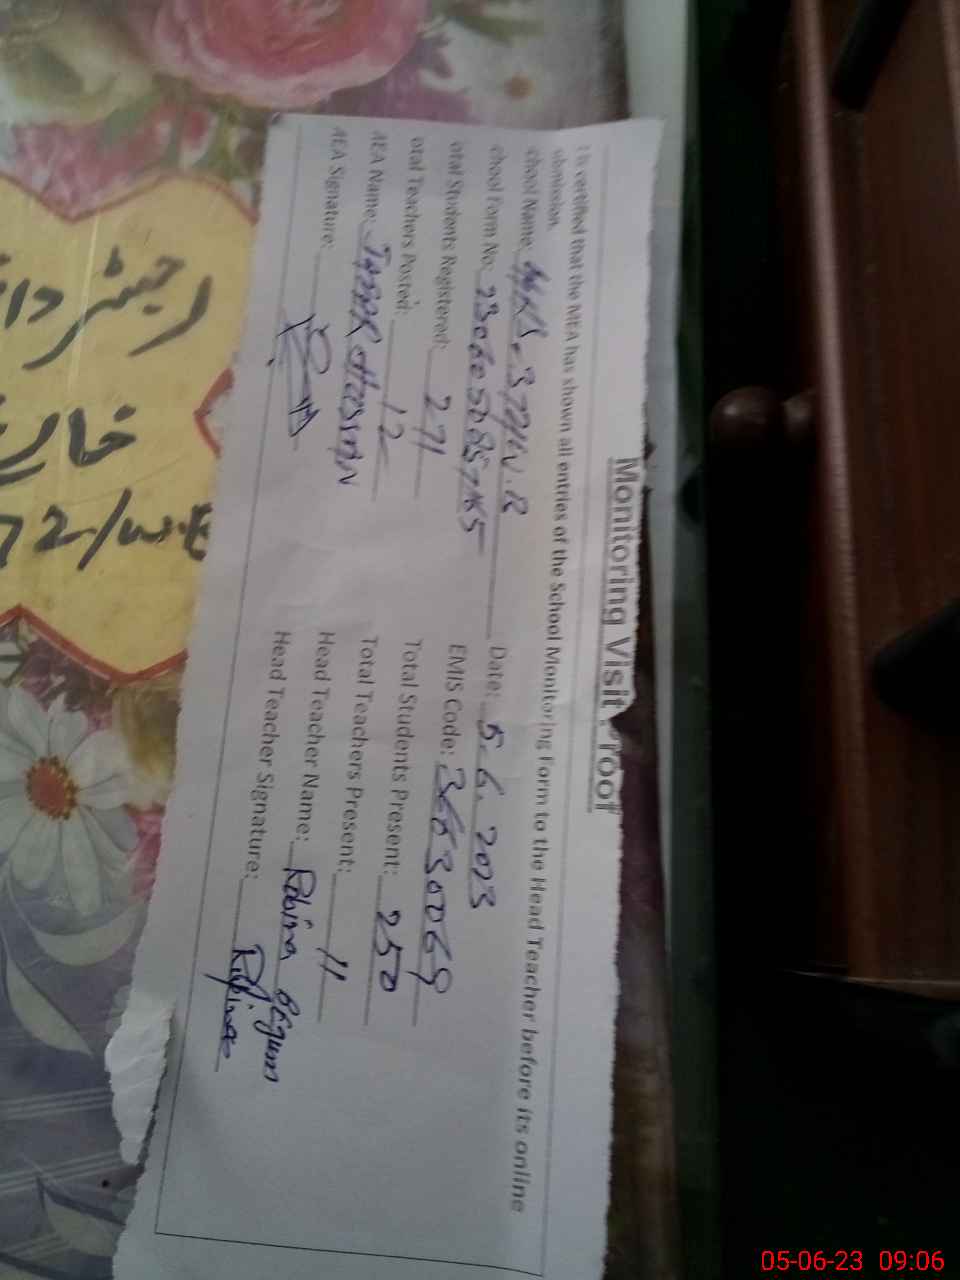 Monitoring Visit Proof
t is certified that the MEA has shown all entries of the School Monitoring Form to the Head Teacher before its online
ubmission.
chool Name: Date: 5.6.2023
chool Form No: EMIS Code: 36630069
otal Students Registered: 271 Total Students Present: 250
otal Teachers Posted: 12 Total Teachers Present: 11
AEA Name: Head Teacher Name: Robina Begum
AEA Signature: Head Teacher Signature: Robina
رجسٹر
72/W.B
05-06-23 09:06